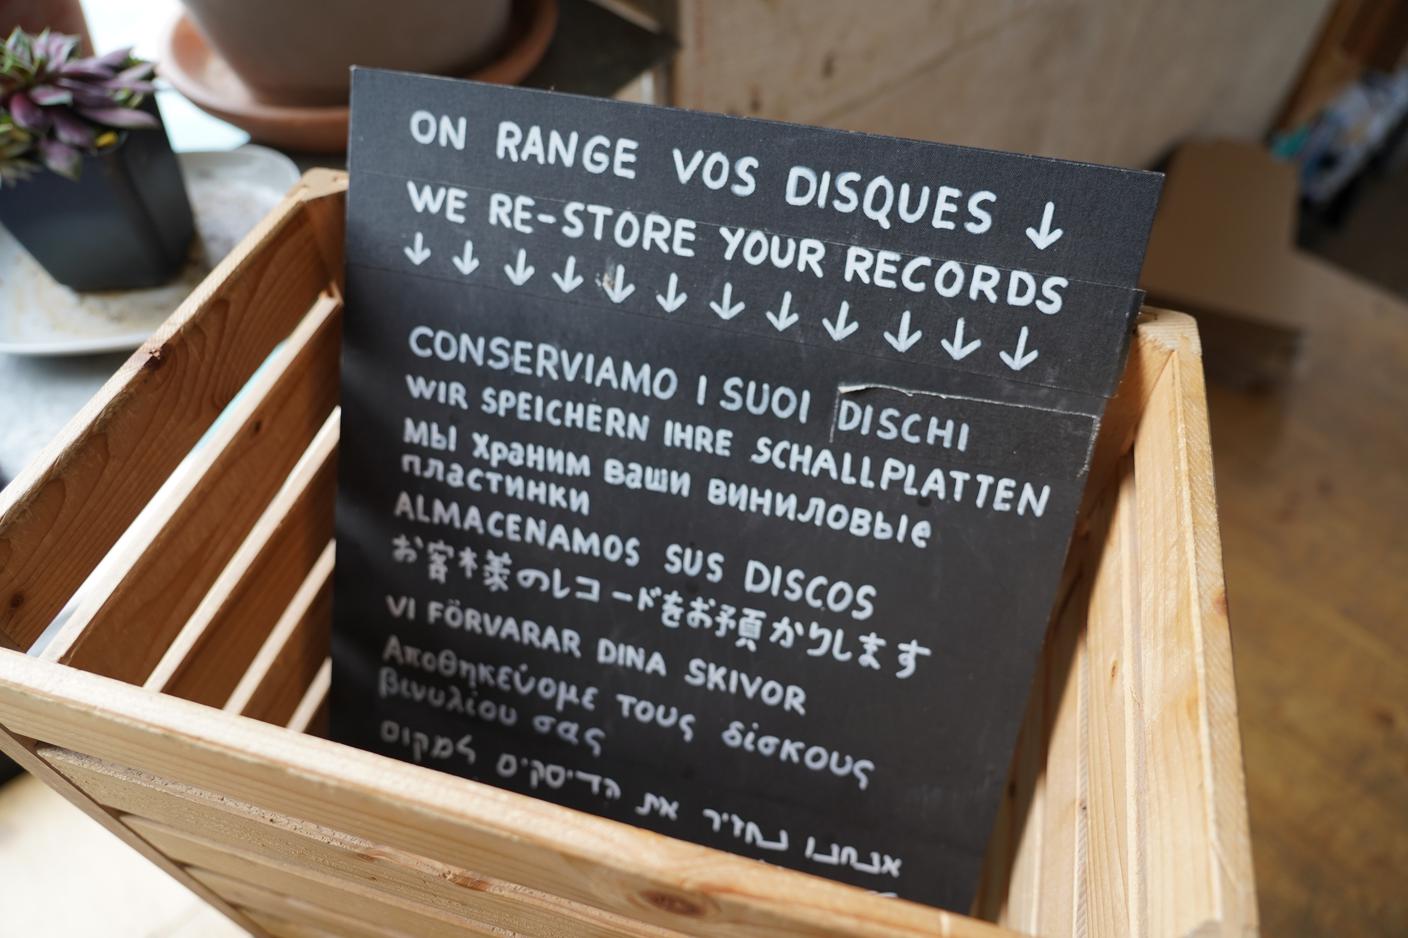 ON RANGE VOS DISQUES ↓
WE RE-STORE YOUR RECORDS
↓ ↓ ↓ ↓ ↓ ↓ ↓ ↓ ↓ ↓ ↓ ↓
CONSERVIAMO I SUOI DISCHI
WIR SPEICHERN IHRE SCHALLPLATTEN
мы храним ваши виниловые
пластинки
ALMACENAMOS SUS DISCOS
お客様のレコードをお預かりします
VI FÖRVARAR DINA SKIVOR
Αποθηκεύομε τους δίσκους
βινυλίου σας
אנחנו נחזיר את הדיסקים למקום